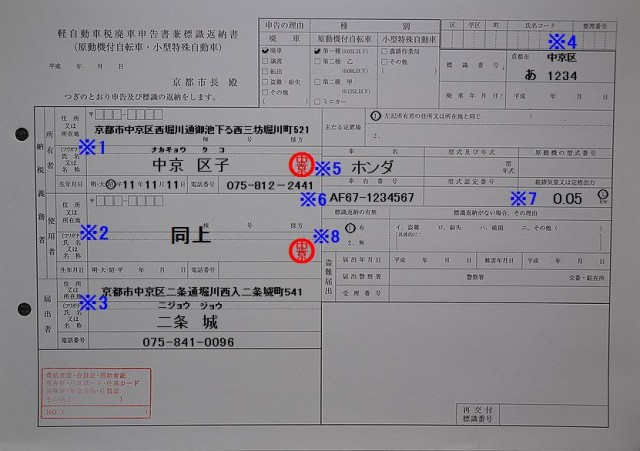 軽自動車税廃車申告書兼標識返納書
(原動機付自転車・小型特殊自動車)
平成 年 月 日
京都市長 殿
つぎのとおり申告及び標識の返納をします。
申告の理由
種 別
廃車
原動機付自転車
小型特殊自動車
廃車
譲渡
転出
盗難・紛失
その他
第一種
第二種 乙
第二種 甲
ミニカー
農耕作業用
その他
区
学区
町
氏名コード
整理番号
※4
標識番号
京都市 中京区
あ 1234
廃車年月日
平成 年 月 日
納税義務者
所有者
住所又は所在地
〒
京都市中京区西堀川通御池下る西三坊堀川町521
号 様方
※1
(フリガナ)
氏名又は名称
ナカギョウ クコ
中京 区子
中京
※5
生年月日
明・大・昭・平 11年11月11日
電話番号
075-812-2441
使用者
住所又は所在地
〒
棟 号 様方
※6
※2
(フリガナ)
氏名又は名称
同上
中京
※8
生年月日
明・大・昭・平 年 月 日
電話番号
届出者
住所又は所在地
京都市中京区二条通堀川西入二条城町541
※3
(フリガナ)
氏名又は名称
ニジョウ ジョウ
二条 城
電話番号
075-841-0096
主たる定置場
1 左記所有者の住所又は所在地と同じ
車名
型式及び年式
原動機の型式番号
ホンダ
型
年式
車台番号
型式認定番号
総排気量又は定格出力
AF67-1234567
※7
0.05
標識返納の有無
標識返納がない場合、その理由
1. 有
2. 無
イ. 盗難
ロ. 紛失
ハ. 破損
ニ. その他( )
盗難届出
届出年月日
平成 年 月 日
被害年月日
平成 年 月 日
届出警察署
警察署
交番・駐在所
受理番号
NO. ( )
再交付標識番号